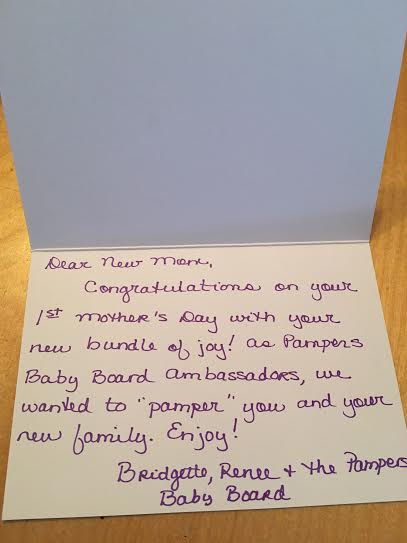 Dear New Mom,
Congratulations on your
1st Mother's Day with your
new bundle of joy! As Pampers
Baby Board Ambassadors, we
wanted to "pamper" you and your
new family. Enjoy!
Bridgette, Renee + the Pampers
Baby Board